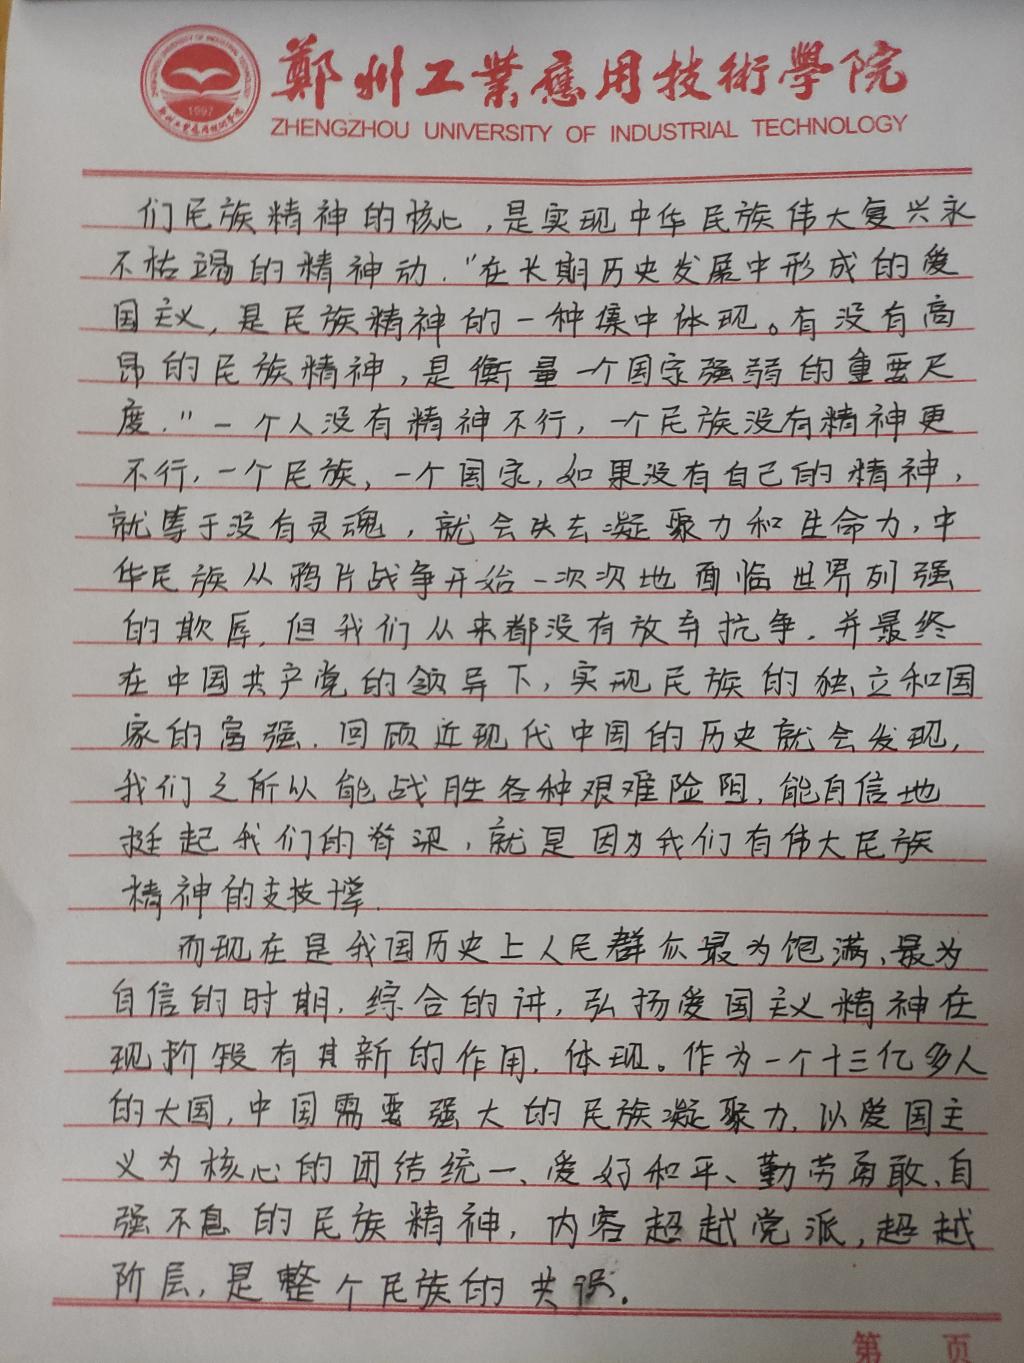 鄭州工業應用技術學院
ZHENGZHOU UNIVERSITY OF INDUSTRIAL TECHNOLOGY
们民族精神的核心,是实现中华民族伟大复兴永
不枯竭的精神动."在长期历史发展中形成的爱
国主义,是民族精神的一种集中体现。有没有高
昂的民族精神,是衡量一个国家强弱的重要尺
度."一个人没有精神不行,一个民族没有精神更
不行,一个民族,一个国家,如果没有自己的精神,
就等于没有灵魂,就会失去凝聚力和生命力,中
华民族从鸦片战争开始一次次地面临世界列强
的欺辱,但我们从来都没有放弃抗争.并最终
在中国共产党的领导下,实现民族的独立和国
家的富强.回顾近现代中国的历史就会发现,
我们之所以能战胜各种艰难险阻,能自信地
挺起我们的脊梁,就是因为我们有伟大民族
精神的支技撑.
而现在是我国历史上人民群众最为饱满、最为
自信的时期,综合的讲,弘扬爱国主义精神在
现阶段有其新的作用,体现。作为一个十三亿多人
的大国,中国需要强大的民族凝聚力,以爱国主
义为核心的团结统一、爱好和平、勤劳勇敢、自
强不息的民族精神,内容超越党派,超越
阶层,是整个民族的共识.
第 页
1997